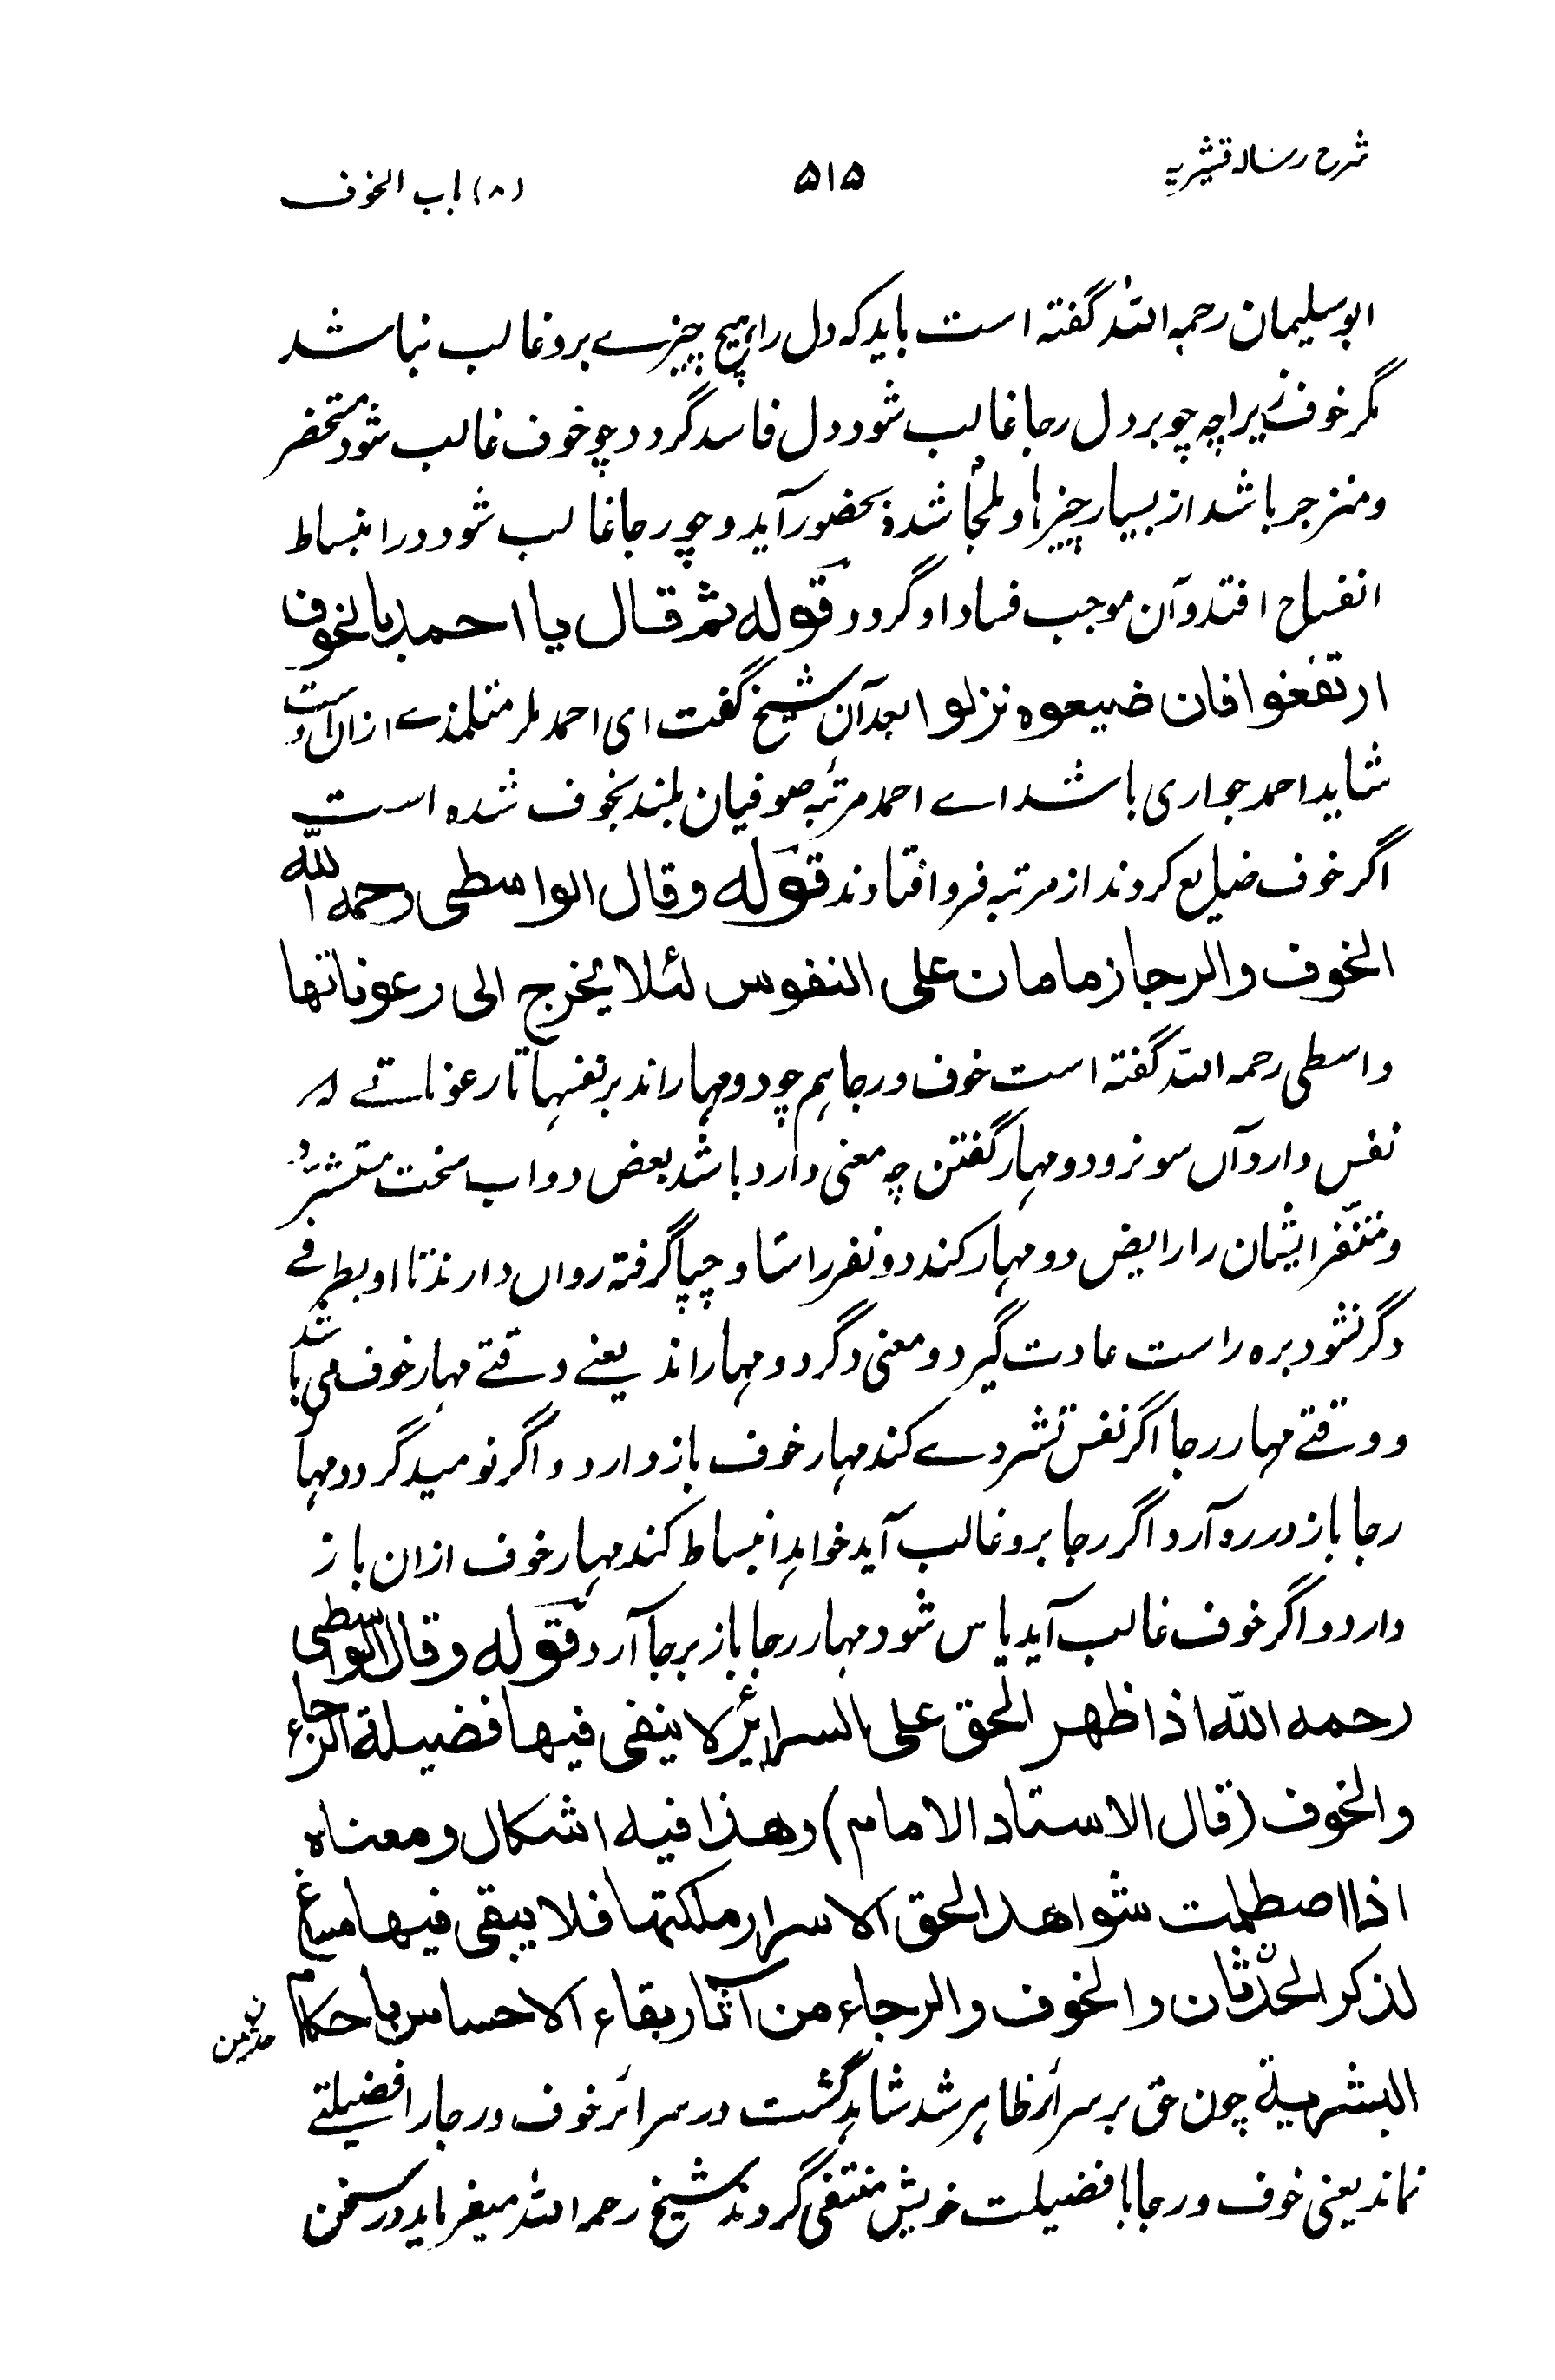 شرح رساله قشیریه
۵۱۵
(۸) باب الخوف
ابو سلیمان رحمہ اللہ گفتہ است باید کہ دل را ہیچ چیزے برو غالب نباشد
مگر خوف زیراچہ چو بر دل رجا غالب شود دل فاسد گردد چو خوف غالب شود متحضر
و منزجر باشد از بسیار چیزہا و ملجأ شدہ بحضور آید و چو رجا غالب شود در انبساط
انفساح افتد و آن موجب فساد او گردد قوله ثم قال یا احمد بالخوف
ارتفعوا فان ضیعوه نزلوا بعد آن شیخ گفت ای احمد مر متلمذے ازان اوست
شاید احمد حواری باشد اے احمد مرتبۂ صوفیان بلند بخوف شدہ است
اگر خوف ضایع کردند از مرتبہ فرو افتادند قوله وقال الواسطی رحمه الله
الخوف والرجا زمامان علی النفوس لئلا یخرج الی رعوناتها
واسطی رحمہ اللہ گفتہ است خوف و رجا ہم چو دو مہاراند بر نفسہا تا رعوناتے کہ
نفس دارد آں سو نرود دو مہار گفتن چہ معنی دارد باشد بعض دواب سخت متشرد
و متنفر ایشان را رایض دو مہار کند دو نفر راستا و چپا گرفتہ رواں دارند تا او بطرفے
دگر نشود برہ راست عادت گیرد و معنی دگر دو مہاراند یعنے وقتے مہار خوف می باشد
و وقتے مہار رجا اگر نفس تشردے کند مہار خوف باز دارد و اگر نومید گردد مہار
رجا باز در رہ آرد اگر رجا برو غالب آید خواہد انبساط کند مہار خوف ازان باز
دارد و اگر خوف غالب آید یاس شود مہار رجا باز برجا آرد قوله وقال الواسطی
رحمه الله اذا ظهر الحق علی السرائر لا ینفی فیها فضیلة الرجاء
والخوف (قال الاستاد الامام) وهذا فیه اشکال ومعناه
اذا اصطلمت شواهد الحق الاسرار ملکتها فلا یبقی فیها مساغ
لذکر الحدثان والخوف والرجاء من آثار بقاء الاحساس باحکام
البشریة چون حق بر سرائر ظاہر شد شاہد گشت در سرائر خوف و رجا را فضیلتے
نماند یعنی خوف و رجا با فضیلت خویش منتفی گردند شیخ رحمہ اللہ میفرماید در سخن